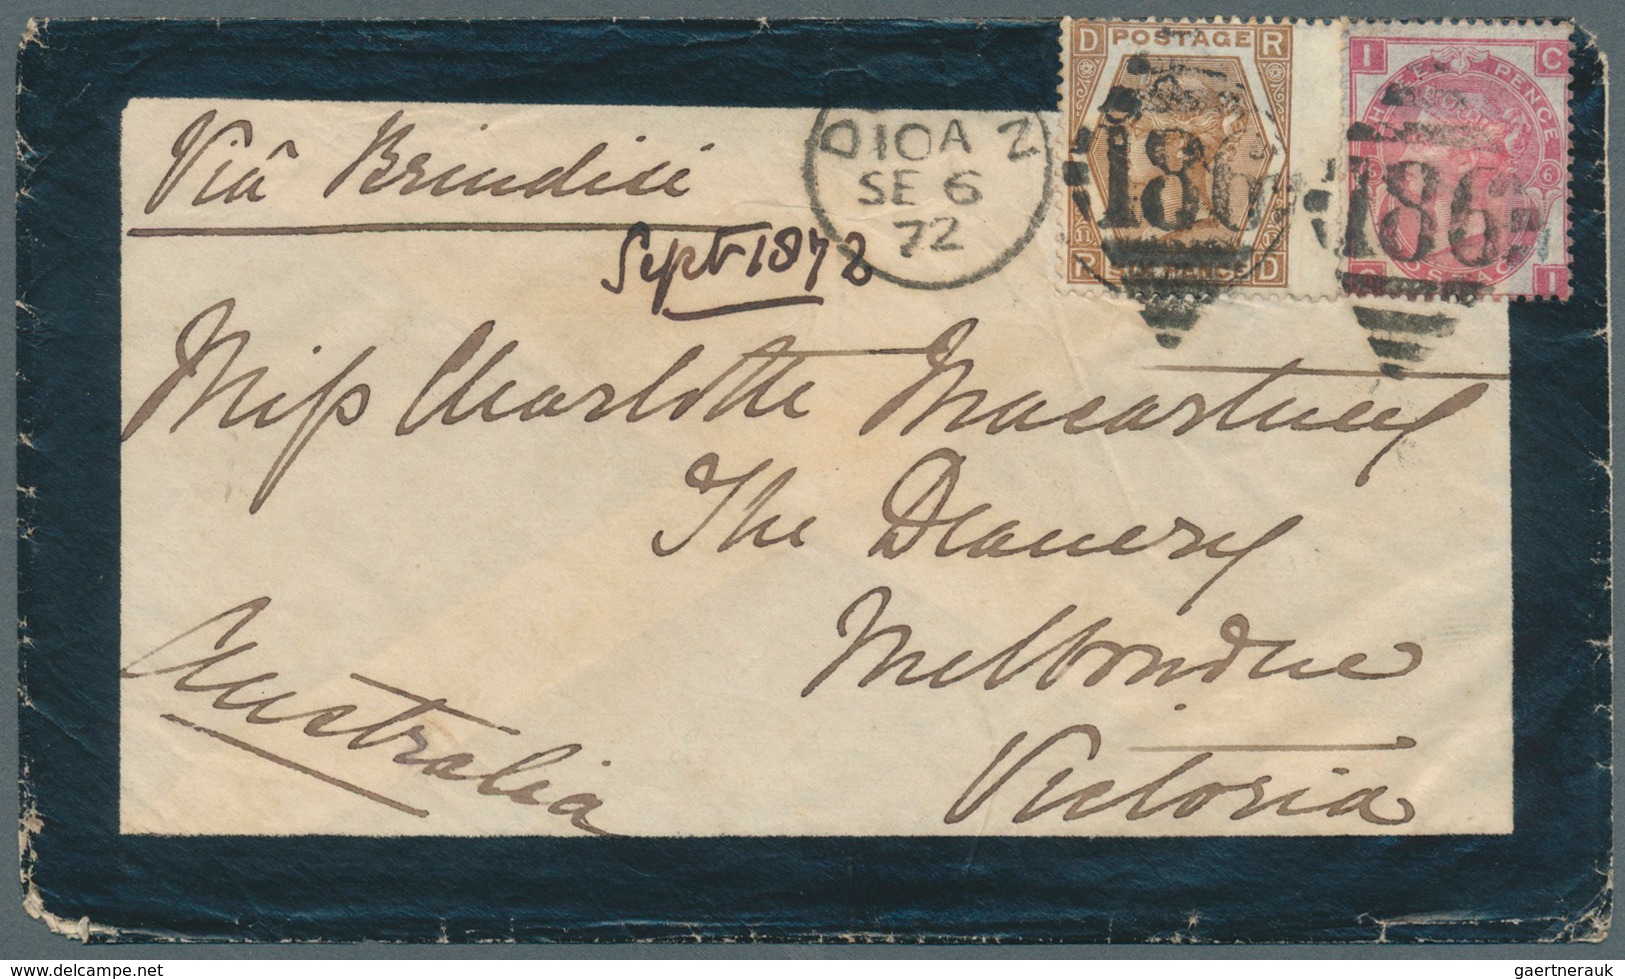 Viâ Brindisi
Sept 1872
D10A Z
SE 6
72
D POSTAGE R
11 11
R SIX PENCE D
186
I THREE PENCE C
6 6
C POSTAGE I
186
Miss Charlotte Macartney
The Deanery
Melbourne
Victoria
Australia
www.delcampe.net
gaertnerauk